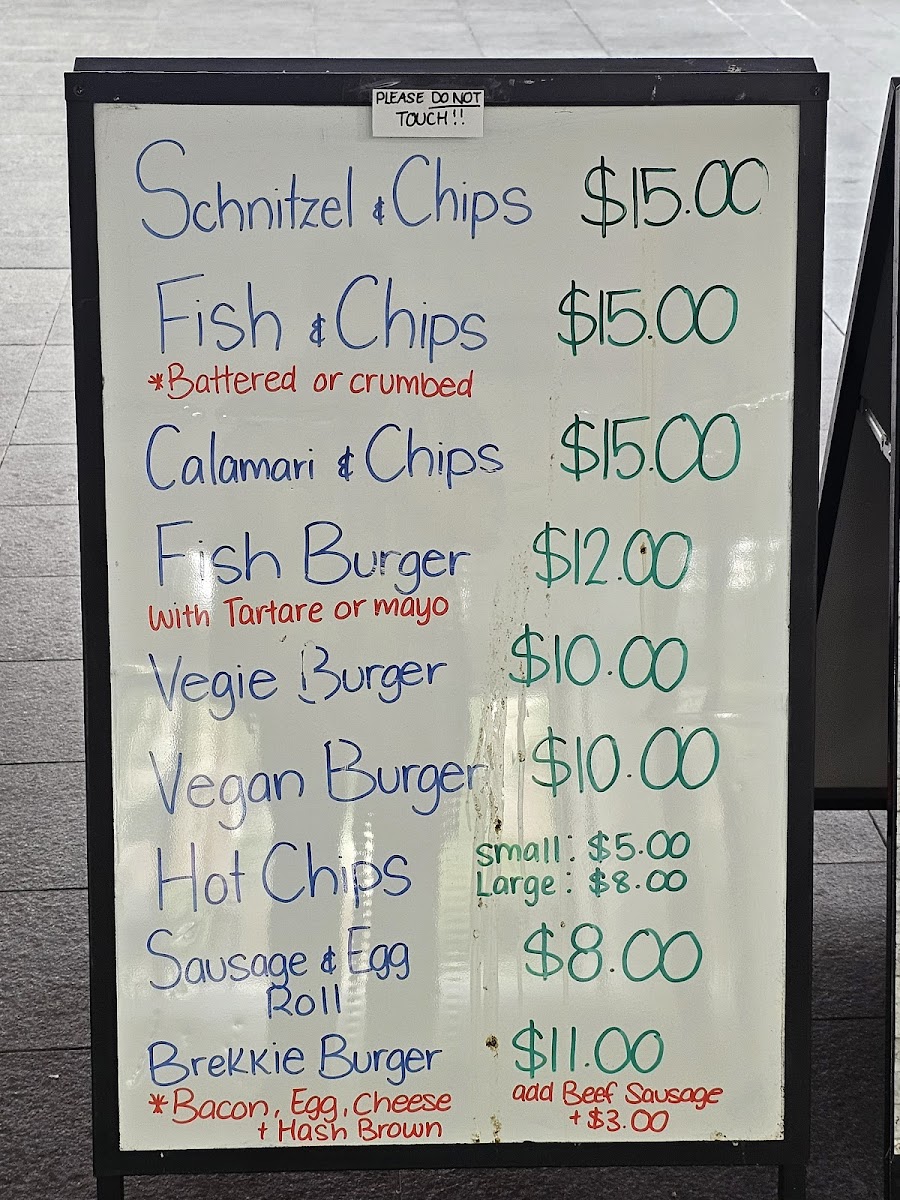 PLEASE DO NOT
TOUCH!!
Schnitzel & Chips $15.00
Fish & Chips $15.00
*Battered or crumbed
Calamari & Chips $15.00
Fish Burger $12.00
with Tartare or mayo
Vegie Burger $10.00
Vegan Burger $10.00
Hot Chips small: $5.00
Large: $8.00
Sausage & Egg $8.00
Roll
Brekkie Burger $11.00
*Bacon, Egg, Cheese add Beef Sausage
+ Hash Brown + $3.00